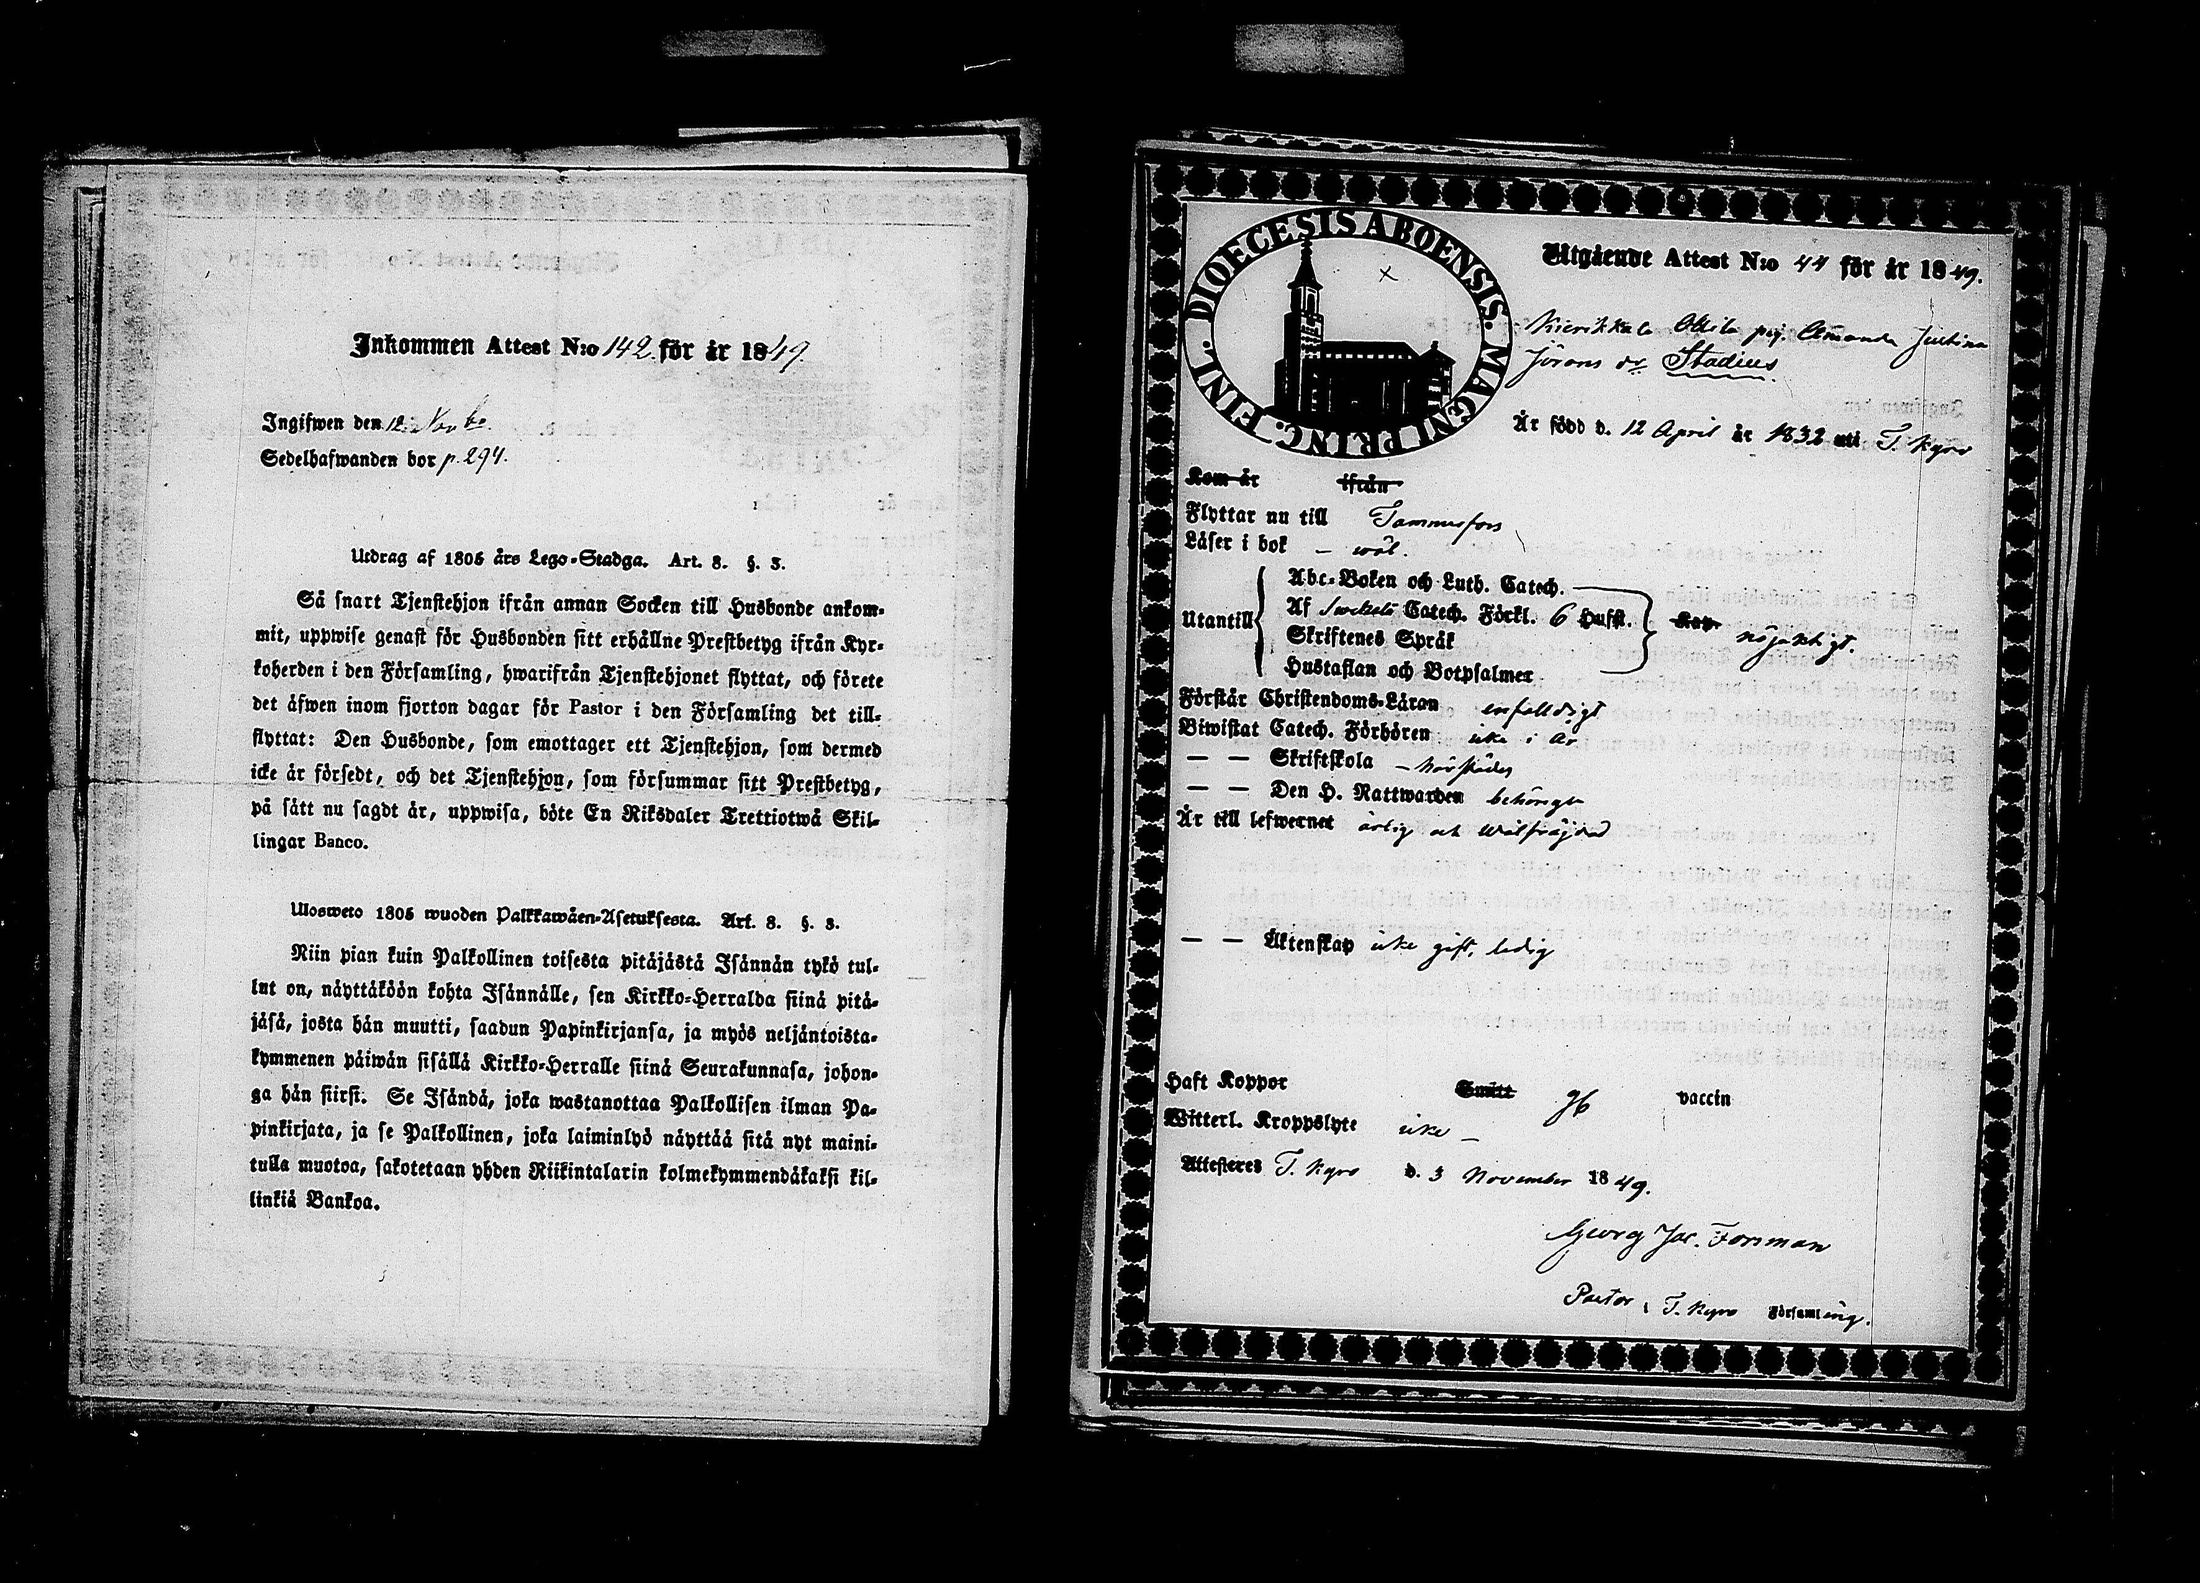 Inkommen Attest N:o 142. för år 1849.
Ingifwen den 12 Novbr.
Sedelhafwanden bor p. 294.
Utdrag af 1805 års Lego-Stadga. Art. 8. §. 3.
Så snart Tjenstehjon ifrån annan Socken till Husbonde ankom-
mit, uppwise genast för Husbonden sitt erhållne Prestbetyg ifrån Kyr-
koherden i den Församling, hwarifrån Tjenstehjonet flyttat, och förete
det äfwen inom fjorton dagar för Pastor i den Församling det till-
flyttat: Den Husbonde, som emottager ett Tjenstehjon, som dermed
icke är försedt, och det Tjenstehjon, som försummar sitt Prestbetyg,
på sätt nu sagdt är, uppwisa, böte En Riksdaler Trettiotwå Skil-
lingar Banco.
Ulosweto 1805 wuoden Palkkawäen-Asetuksesta. Art. 8. §. 3.
Niin pian kuin Palkollinen toisesta pitäjästä Isännän tykö tul-
lut on, näyttäköön kohta Isännälle, sen Kirkko-Herralda siinä pitä-
jäsä, josta hän muutti, saadun Papinkirjansa, ja myös neljäntoista-
kymmenen päiwän sisällä Kirkko-Herralle siinä Seurakunnasa, johon-
ga hän siirsi. Se Isändä, joka wastanottaa Palkollisen ilman Pa-
pinkirjata, ja se Palkollinen, joka laiminlyö näyttää sitä nyt maini-
tulla muotoa, sakotetaan yhden Riikintalarin kolmekymmendäkaksi kil-
linkiä Bankoa.
DIOECESIS ABOENSIS. MAGNI PRINC. FINL.
Utgående Attest N:o 44 för år 1849.
Kierikkala Ottila pig. Amanda Justina
Jörans dr Stadius.
Är född d. 12 April år 1832 uti T. Kyro
Kom år ifrån
Flyttar nu till Tammerfors
Läser i bok – wäl.
Abc-Boken och Luth. Catech.
Utantill Af Swebelii Catech. Förkl. 6 Hufst. Kap. nöjaktigt.
Skriftenes Språk
Hustaflan och Botpsalmer
Förstår Christendoms-Läran enfalldigt
Biwistat Catech. Förhören icke i år
— — Skriftskola –
— — Den H. Nattwarden behörigen
Är till lefwernet ärlig och wälfräjdad
— — Äktenskap icke gift, ledig
Haft Koppor Smitt gb vaccin
Witterl. Kroppslyte icke –
Attesteres T. Kyro d. 3 November 1849.
Georg Jac. Forsman
Pastor i T. Kyro Församling.